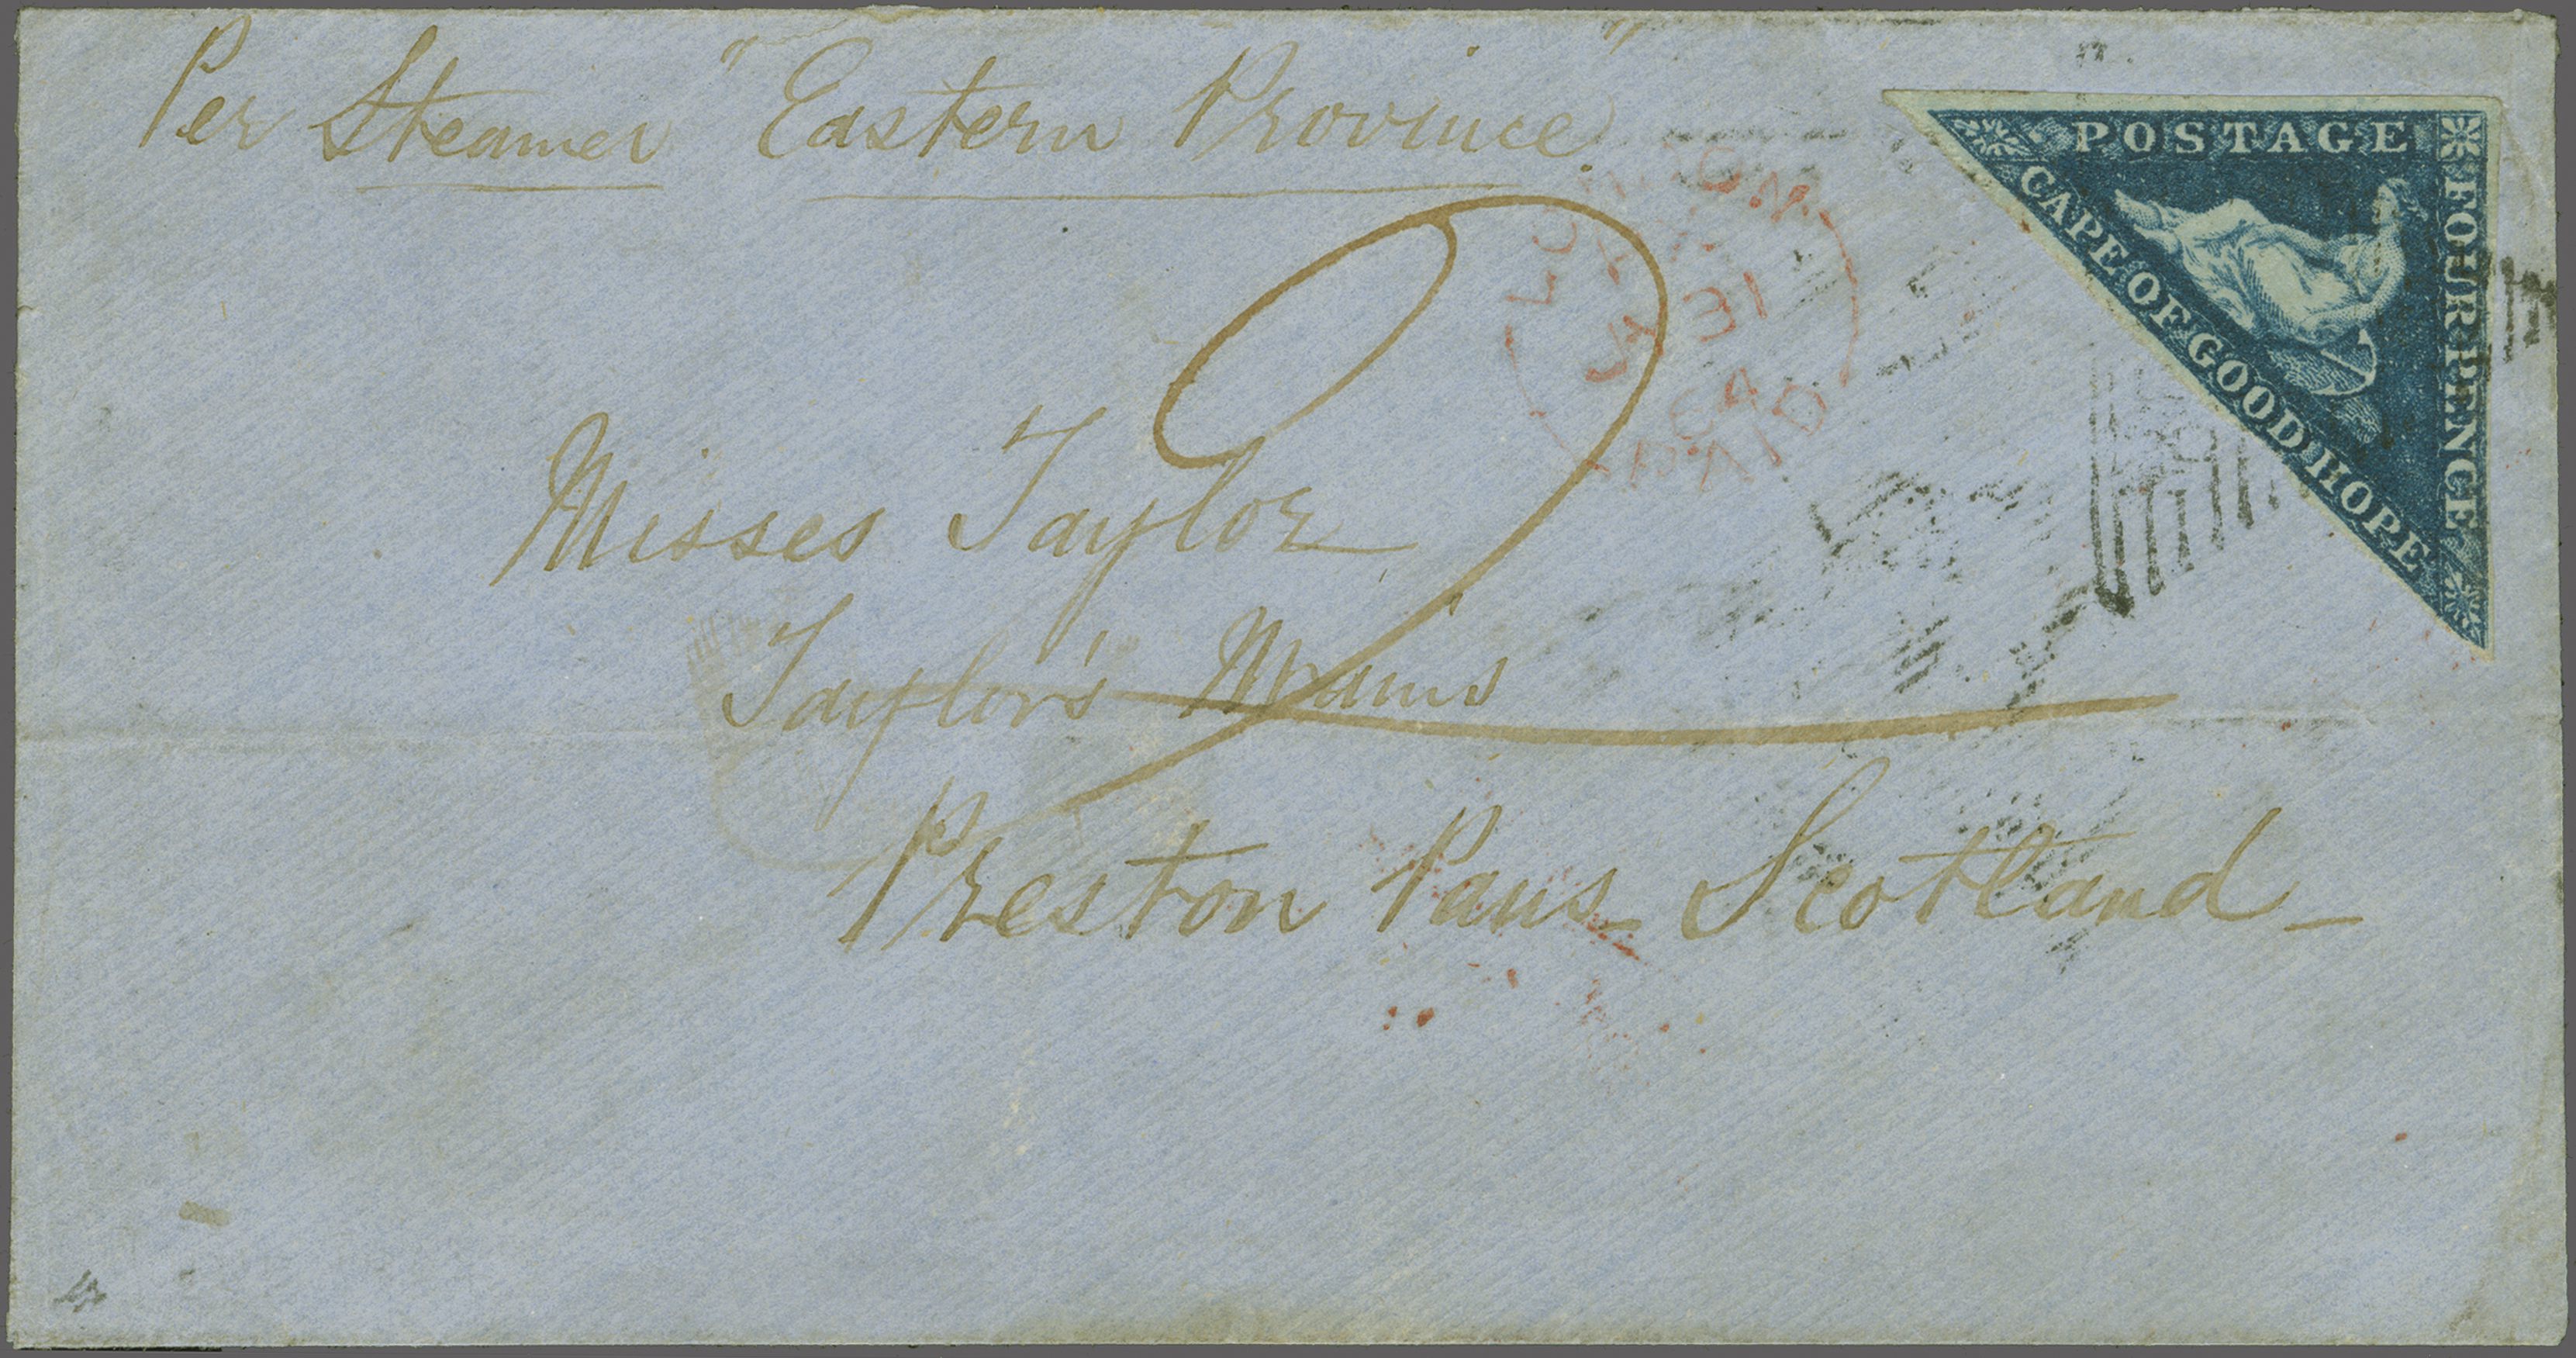 Per Steamer "Eastern Province"
POSTAGE
FOUR PENCE
CAPE OF GOOD HOPE
LONDON
31
64
PAID
Misses Taylor
Taylor's Mains
Preston Pans Scotland